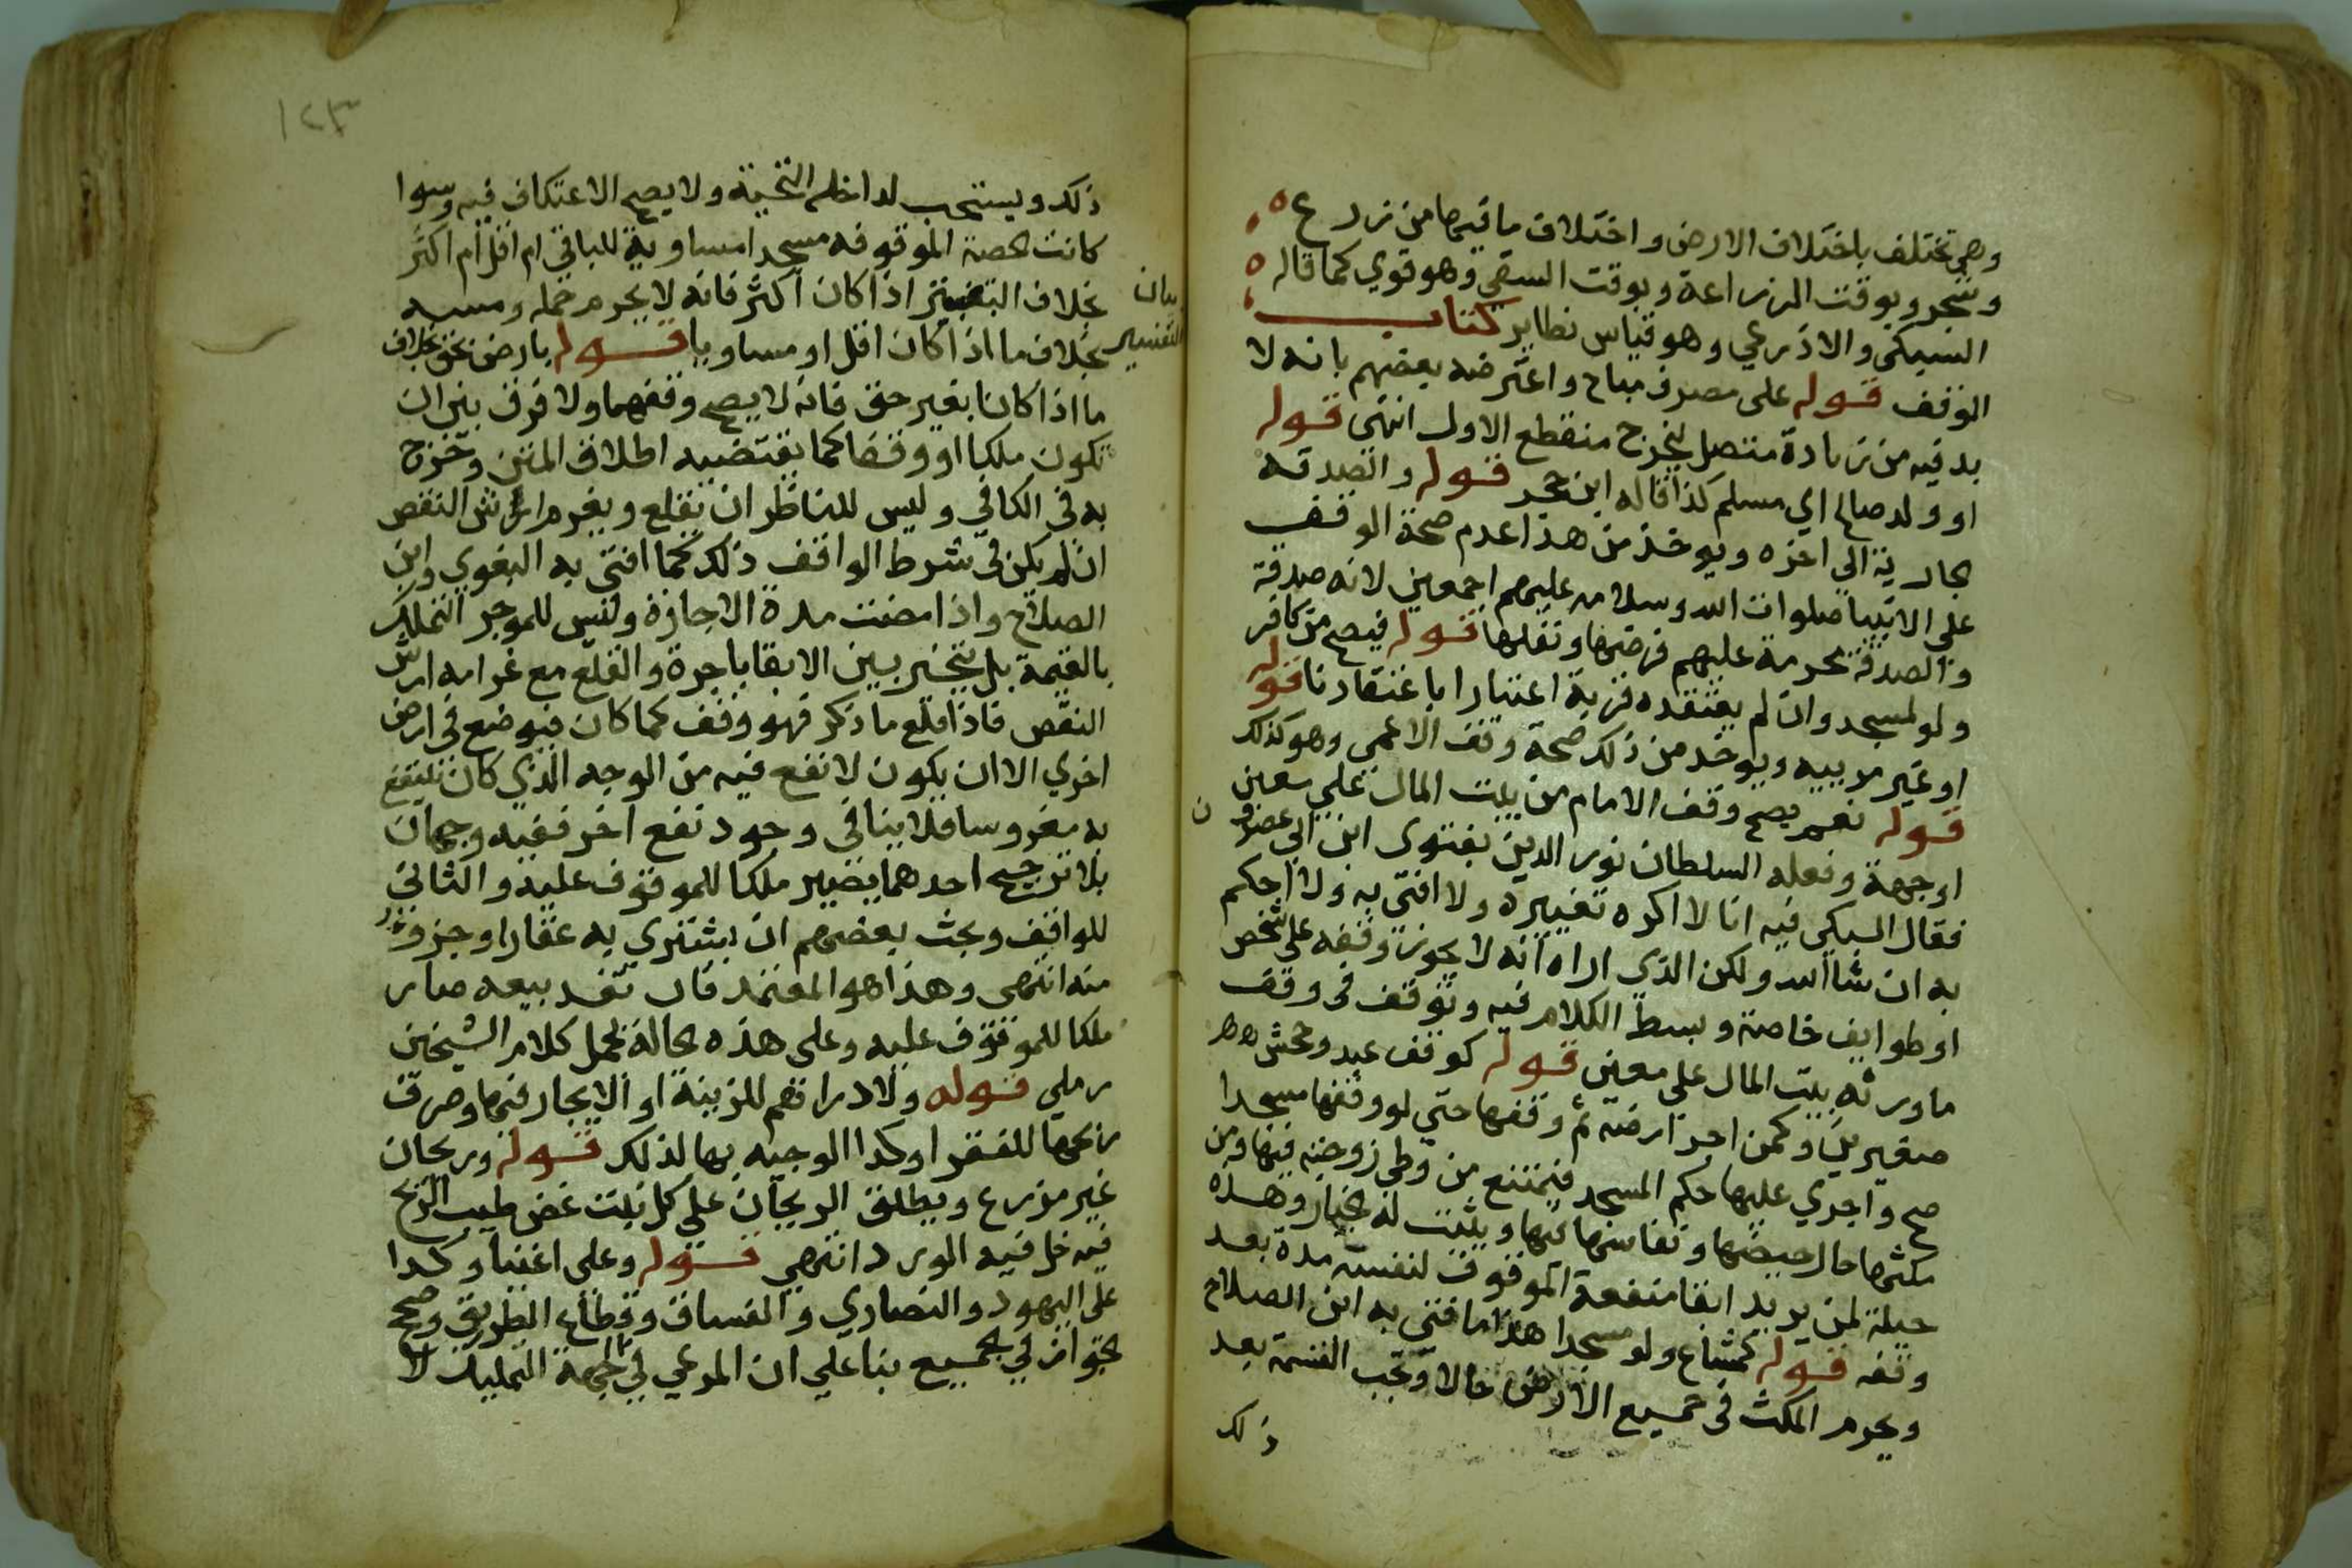 وهي تختلف باختلاف الارض واختلاف ما فيها من زرع
وشجر وبوقت المزراعة وبوقت السقي وهو قوي كما قاله
السبكي والاذرعي وهو قياس نظاير كتاب
الوقف قوله على مصرف مباح واعترضه بعضهم بانه لا
بد فيه من زيادة متصل ليخرج منقطع الاول انتهى قوله
او ولد صالح اي مسلم كذا قاله ابن حجر قوله والصدقه
جارية الي اخره ويوخذ من هذا عدم صحة الوقف
على الانبيا صلوات الله وسلامه عليهم اجمعين لانه صدقة
والصدقة محرمة عليهم فرضها ونفلها قوله فيصح من كافر
ولو لمسجد وان لم يعتقده قربة اعتبارا باعتقادنا قوله
او غير مرييه ويوخد من ذلك صحة وقف الاعمى وهو كذلك
قوله نعم يصح وقف الامام من بيت المال علي معين
او جهة وفعله السلطان نور الدين بفتوى ابن ابي عصرون
فقال السبكي فيه انا لا اكره تغييره ولا افتي به ولا احكم
به ان شا الله ولكن الذي اراه انه لا يجوز وقفه على شخص
او طوايف خاصة وبسط الكلام فيه وتوقف في وقف
ما ورثه بيت المال على معين قوله كوقف عبد وجحش
صغيرين وكمن اجر ارضه ثم وقفها حتي لو وقفها مسجدا
صح واجري عليها حكم المسجد فيمتنع من وطي زوجته فيها ومن
مكثها حال حيضها ونفاسها فيها ويثبت له الخيار وهذه
حيلة لمن يريد ابقا منفعة الموقوف لنفسه مدة بعد
وقفه قوله كمشاع ولو مسجدا هذا ما افتي به ابن الصلاح
ويحرم المكث في جميع الارض حالا وتجب القسمة بعد
ذلك
١٢٣
ذلك ويستحب لداخله التحية ولا يصح الاعتكاف فيه وسوا
كانت الحصة الموقوفه مسجدا مساوية للباقي ام اقل ام اكثر
بخلاف التفسير اذا كان اكثر فانه لا يحرم حمله ومسه
بيان
التفسير
بخلاف ما اذا كان اقل او مساويا قوله بارض بحق بخلاف
ما اذا كانا بغير حق فانه لا يصح وقفهما ولا فرق بين ان
تكون ملكا او وقفا كما يقتضيه اطلاق المتن وتخرج
به في الكافي وليس للناظر ان يقلع ويغرم ارش النقص
ان لم يكن في شرط الواقف ذلك كما افتى به البغوي وابن
الصلاح واذا مضت مدة الاجارة وليس للموجر التملك
بالقيمة بل يتخير بين الابقا باجرة والقلع مع غرامه ارش
النقص فاذا قلع ما ذكر فهو وقف كما كان فيوضع في ارض
اخري الا ان يكون لا نفع فيه من الوجه الذي كان ينتفع
به مغروسا فلا ينافي وجود نفع اخر ففيه وجهان
بلا ترجيح احدهما يصير ملكا للموقوف عليه والثاني
للواقف وبحث بعضهم ان يشتري به عقارا وجزو
منه انتهى وهذا هو المعتمد فان تعذر بيعه صار
ملكا للموقوف عليه وعلى هذه الحالة يحمل كلام الشيخين
رملي قوله ولا دراهم للزينة او الايجار فيها وصرف
ربحها للفقرا وكذا الوجيه بها لذلك قوله وريحان
غير مزرع ويطلق الريحان علي كل نبت غض طيب الريح
فيه خل فيه الورد انتهى قوله وعلى اغنيا وكذا
على اليهود والنصاري والفساق وقطاع الطريق وصح
الجواز في الجميع بنا علي ان المرعي في الجهة التمليك لا